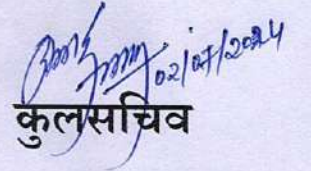 02/07/2024
कुलसचिव